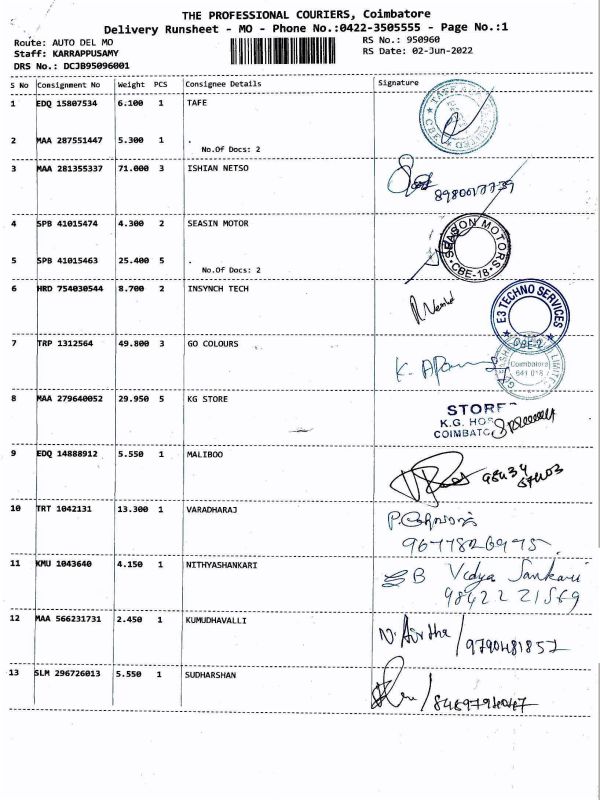 THE PROFESSIONAL COURIERS, Coimbatore
Delivery Runsheet - MO - Phone No.:0422-3505555 - Page No.:1
Route: AUTO DEL MO RS No.: 950960
Staff: KARRAPPUSAMY RS Date: 02-Jun-2022
DRS No.: DCJB95096001
S No Consignment No Weight PCS Consignee Details Signature
1 EDQ 15807534 6.100 1 TAFE
2 MAA 287551447 5.300 1 .
No.Of Docs: 2
3 MAA 281355337 71.000 3 ISHIAN NETSO
4 SPB 41015474 4.300 2 SEASIN MOTOR
SEASON MOTORS
CBE-18
5 SPB 41015463 25.400 5 .
No.Of Docs: 2
6 HRD 754030544 8.700 2 INSYNCH TECH
E3 TECHNO SERVICES
CBE-2
7 TRP 1312564 49.800 3 GO COLOURS
Coimbatore
641 018
8 MAA 279640052 29.950 5 KG STORE
STORE
K.G. HOS
COIMBATO
9 EDQ 14888912 5.550 1 MALIBOO
10 TRT 1042131 13.300 1 VARADHARAJ
11 KMU 1043640 4.150 1 NITHYASHANKARI
Vidya Sankari
98422 21569
12 MAA 566231731 2.450 1 KUMUDHAVALLI
9790481857
13 SLM 296726013 5.550 1 SUDHARSHAN